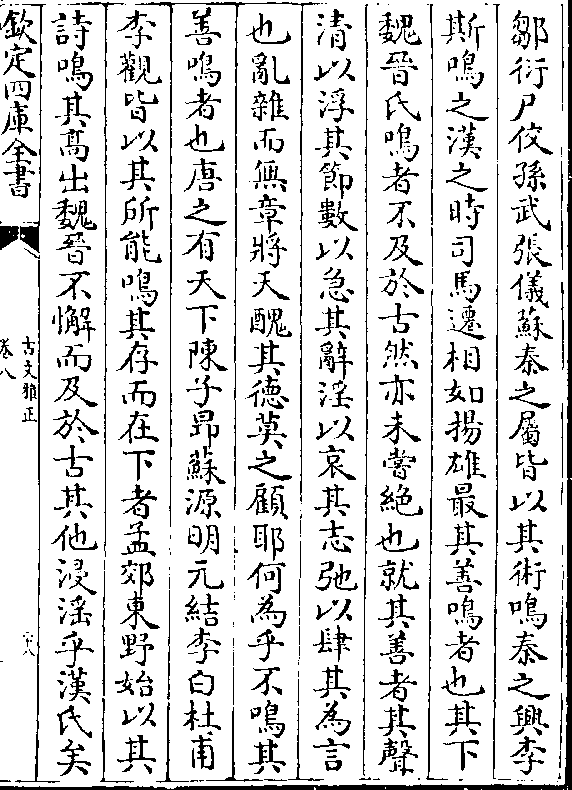 鄒衍尸佼孫武張儀蘇秦之屬皆以其術鳴秦之興李
斯鳴之漢之時司馬遷相如揚雄最其善鳴者也其下
魏晉氏鳴者不及於古然亦未嘗絶也就其善者其聲
清以浮其節數以急其辭淫以哀其志弛以肆其為言
也亂雜而無章將天醜其德莫之顧耶何為乎不鳴其
善鳴者也唐之有天下陳子昻蘇源明元結李白杜甫
李觀皆以其所能鳴其存而在下者孟郊東野始以其
詩鳴其髙出魏晉不懈而及於古其他浸淫乎漢氏矣
欽定四庫全書
古文雅正
卷八